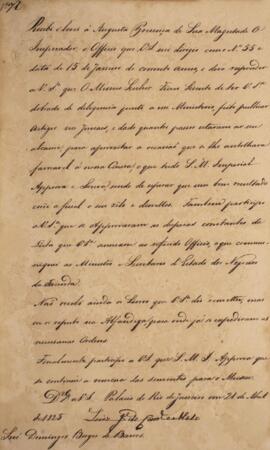 Recebi e levei á Augusta Presença de Sua Magestade O
Imperador o Officio que V.S. me dirigio com o Nº 55 e
data de 15 de Janeiro do corrente anno, e devo responder
a V.Sª que O Mesmo Senhor Ficou Sciente de ter V.Sª
dobrado de deligencia junto a esse Ministerio, feito publicar
Artigos nos Jornaes, e dado quantos passos estavam ao seu
alcance para aproveitar a occasião que se lhe antolhava
favoravel á nossa Causa; o que tudo S. M. Imperial
Approva e Louva, sendo de esperar que um bom resultado
corôe o final o seu zelo e desvellos. Tambem participo
a V.Sª que se Approvaram as despezas constantes da
Lista que V.Sª annexou ao referido Officio, o que communi-
quei ao Ministro e Secretario d'Estado dos Negocios
da Fazenda.
Não recebi ainda os Livros que V.Sª diz remetter, mas
na Alfandega para onde já se expediram as
necessarias Ordens.
Finalmente participo a V.S. que S. M. I. Approva que
se continue a remessa das sementes para o Museu.
Ds. Gde a V.S. Palacio do Rio de Janeiro em 21 de Abril
de 1825
Luiz José de Carvº e Mello
Snr. Domingos Borges de Barros